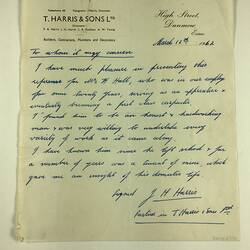 T. HARRIS & SONS LTD
Builders, Contractors, Plumbers and Decorators
High Street,
Dunmow
Essex
March 12th 1962
To whom it may concern
I have much pleasure in presenting this
reference for Mr H Hall, who was in our employ
for over twenty years, serving as an apprentice &
eventually becoming a first class carpenter.
I found him to be an honest & hardworking
man & was very willing to undertake every
variety of work as it came along.
I have known him since he left school & for
a number of years was a tenant of mine, which
gave me an insight of his domestic life.
Signed J. H. Harris
Partner in T Harris & Sons Ltd